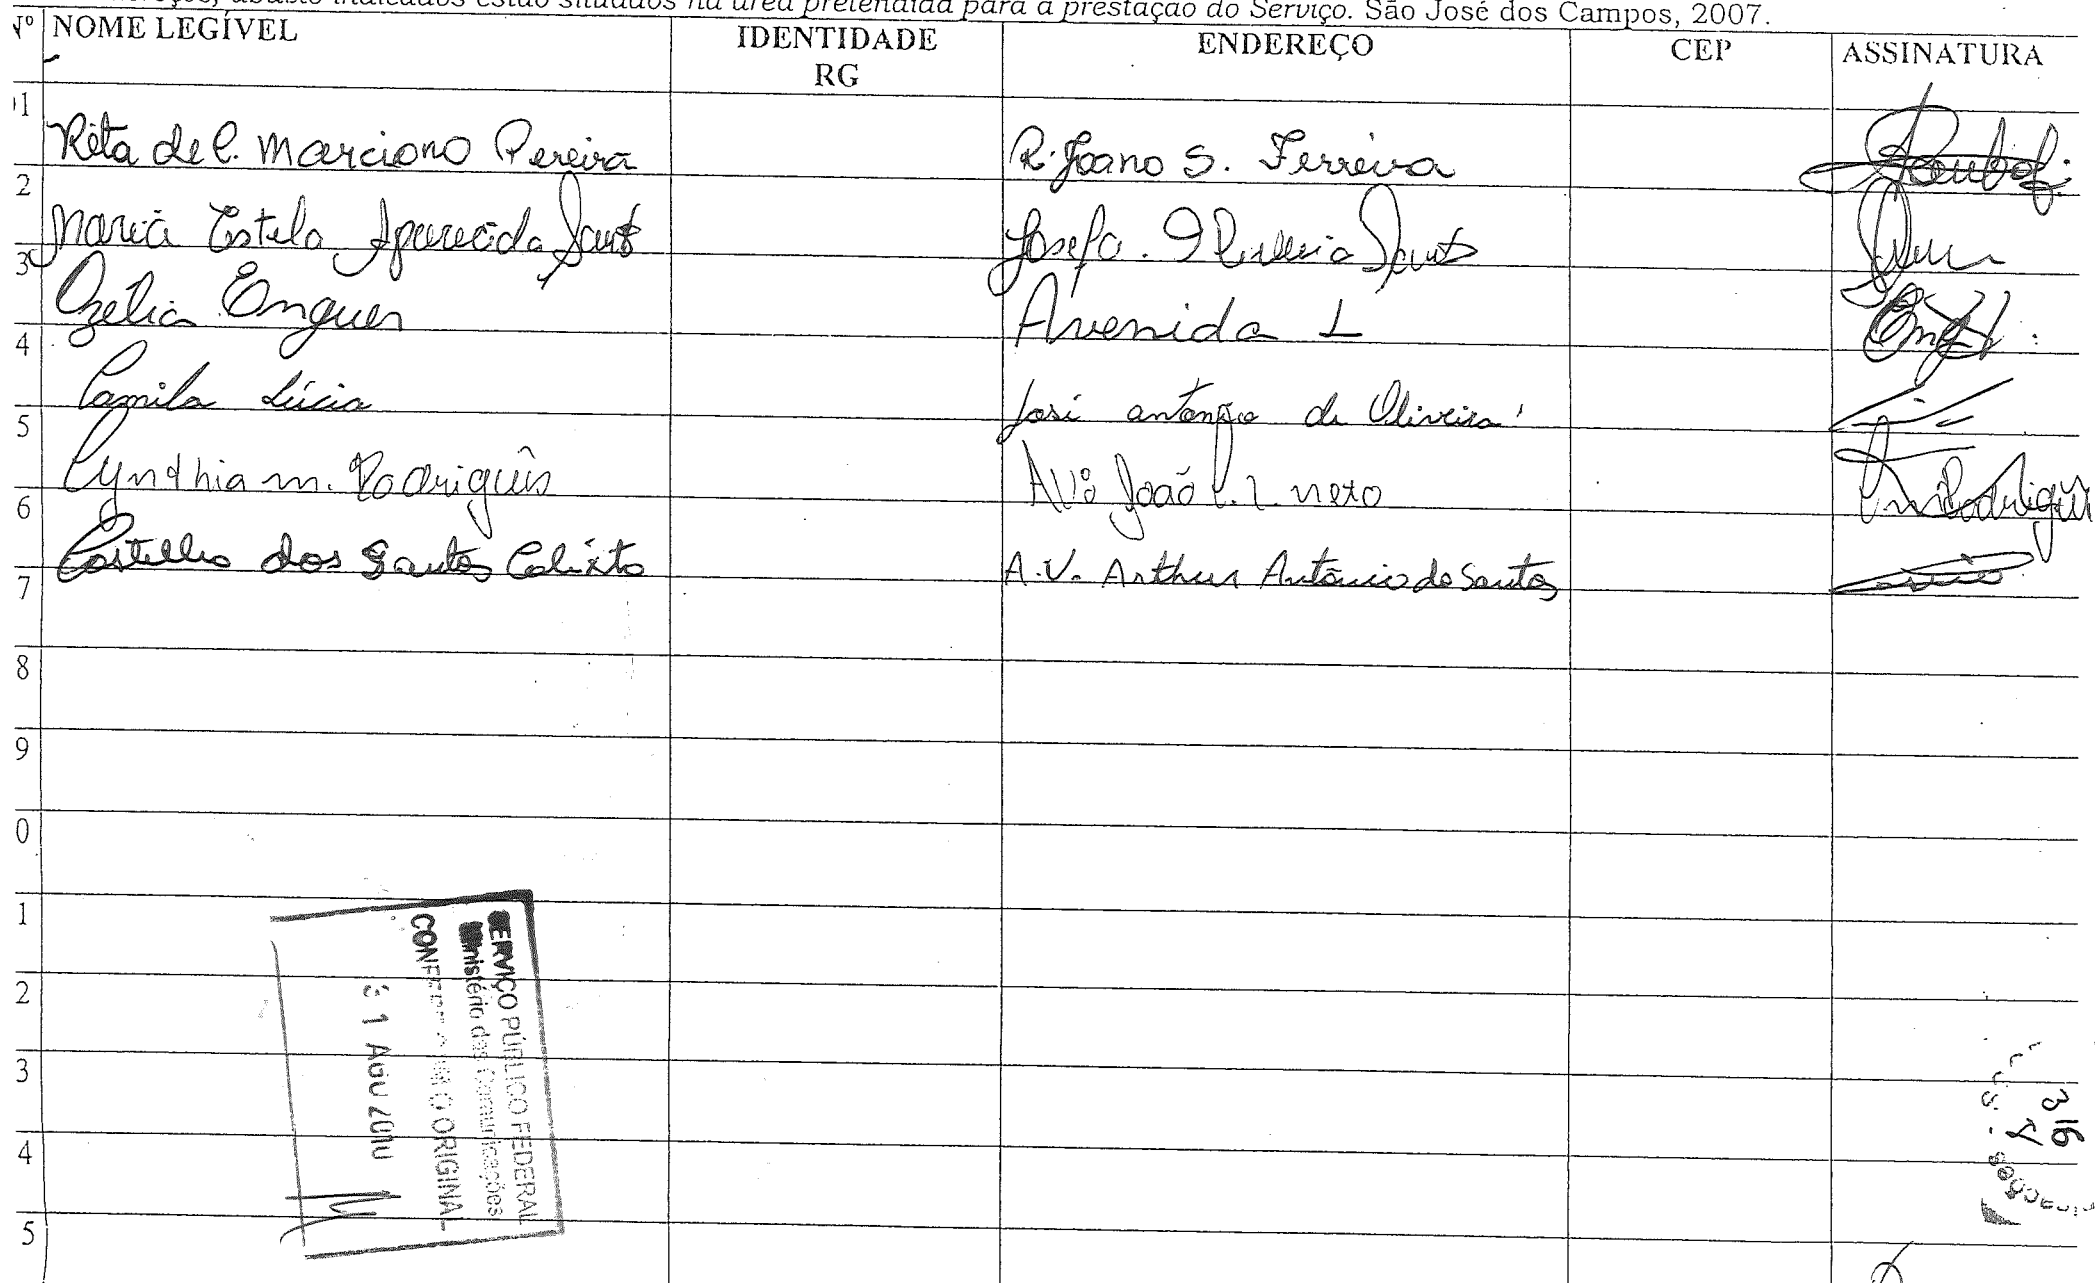 abaixo indicados estão situados na área pretendida para a prestação do Serviço. São José dos Campos, 2007.
Nº NOME LEGÍVEL IDENTIDADE RG ENDEREÇO CEP ASSINATURA
1 Rita de C. Marciano Pereira R. Joano S. Ferreira
2 Maria Estela Aparecida Josefa
3 Ozelia Enguer Avenida 1
4 Camila Lúcia José antonio de Oliveira
5 Cynthia m. Rodrigues João neto
6 Costellio dos Santos Calixto A.V. Arthur Antônio do Santos
7
8
9
0
1
2
3
4
5
SERVIÇO PÚBLICO FEDERAL
Ministério das Comunicações
CONFERE COM O ORIGINAL
31 AGO 2010
316